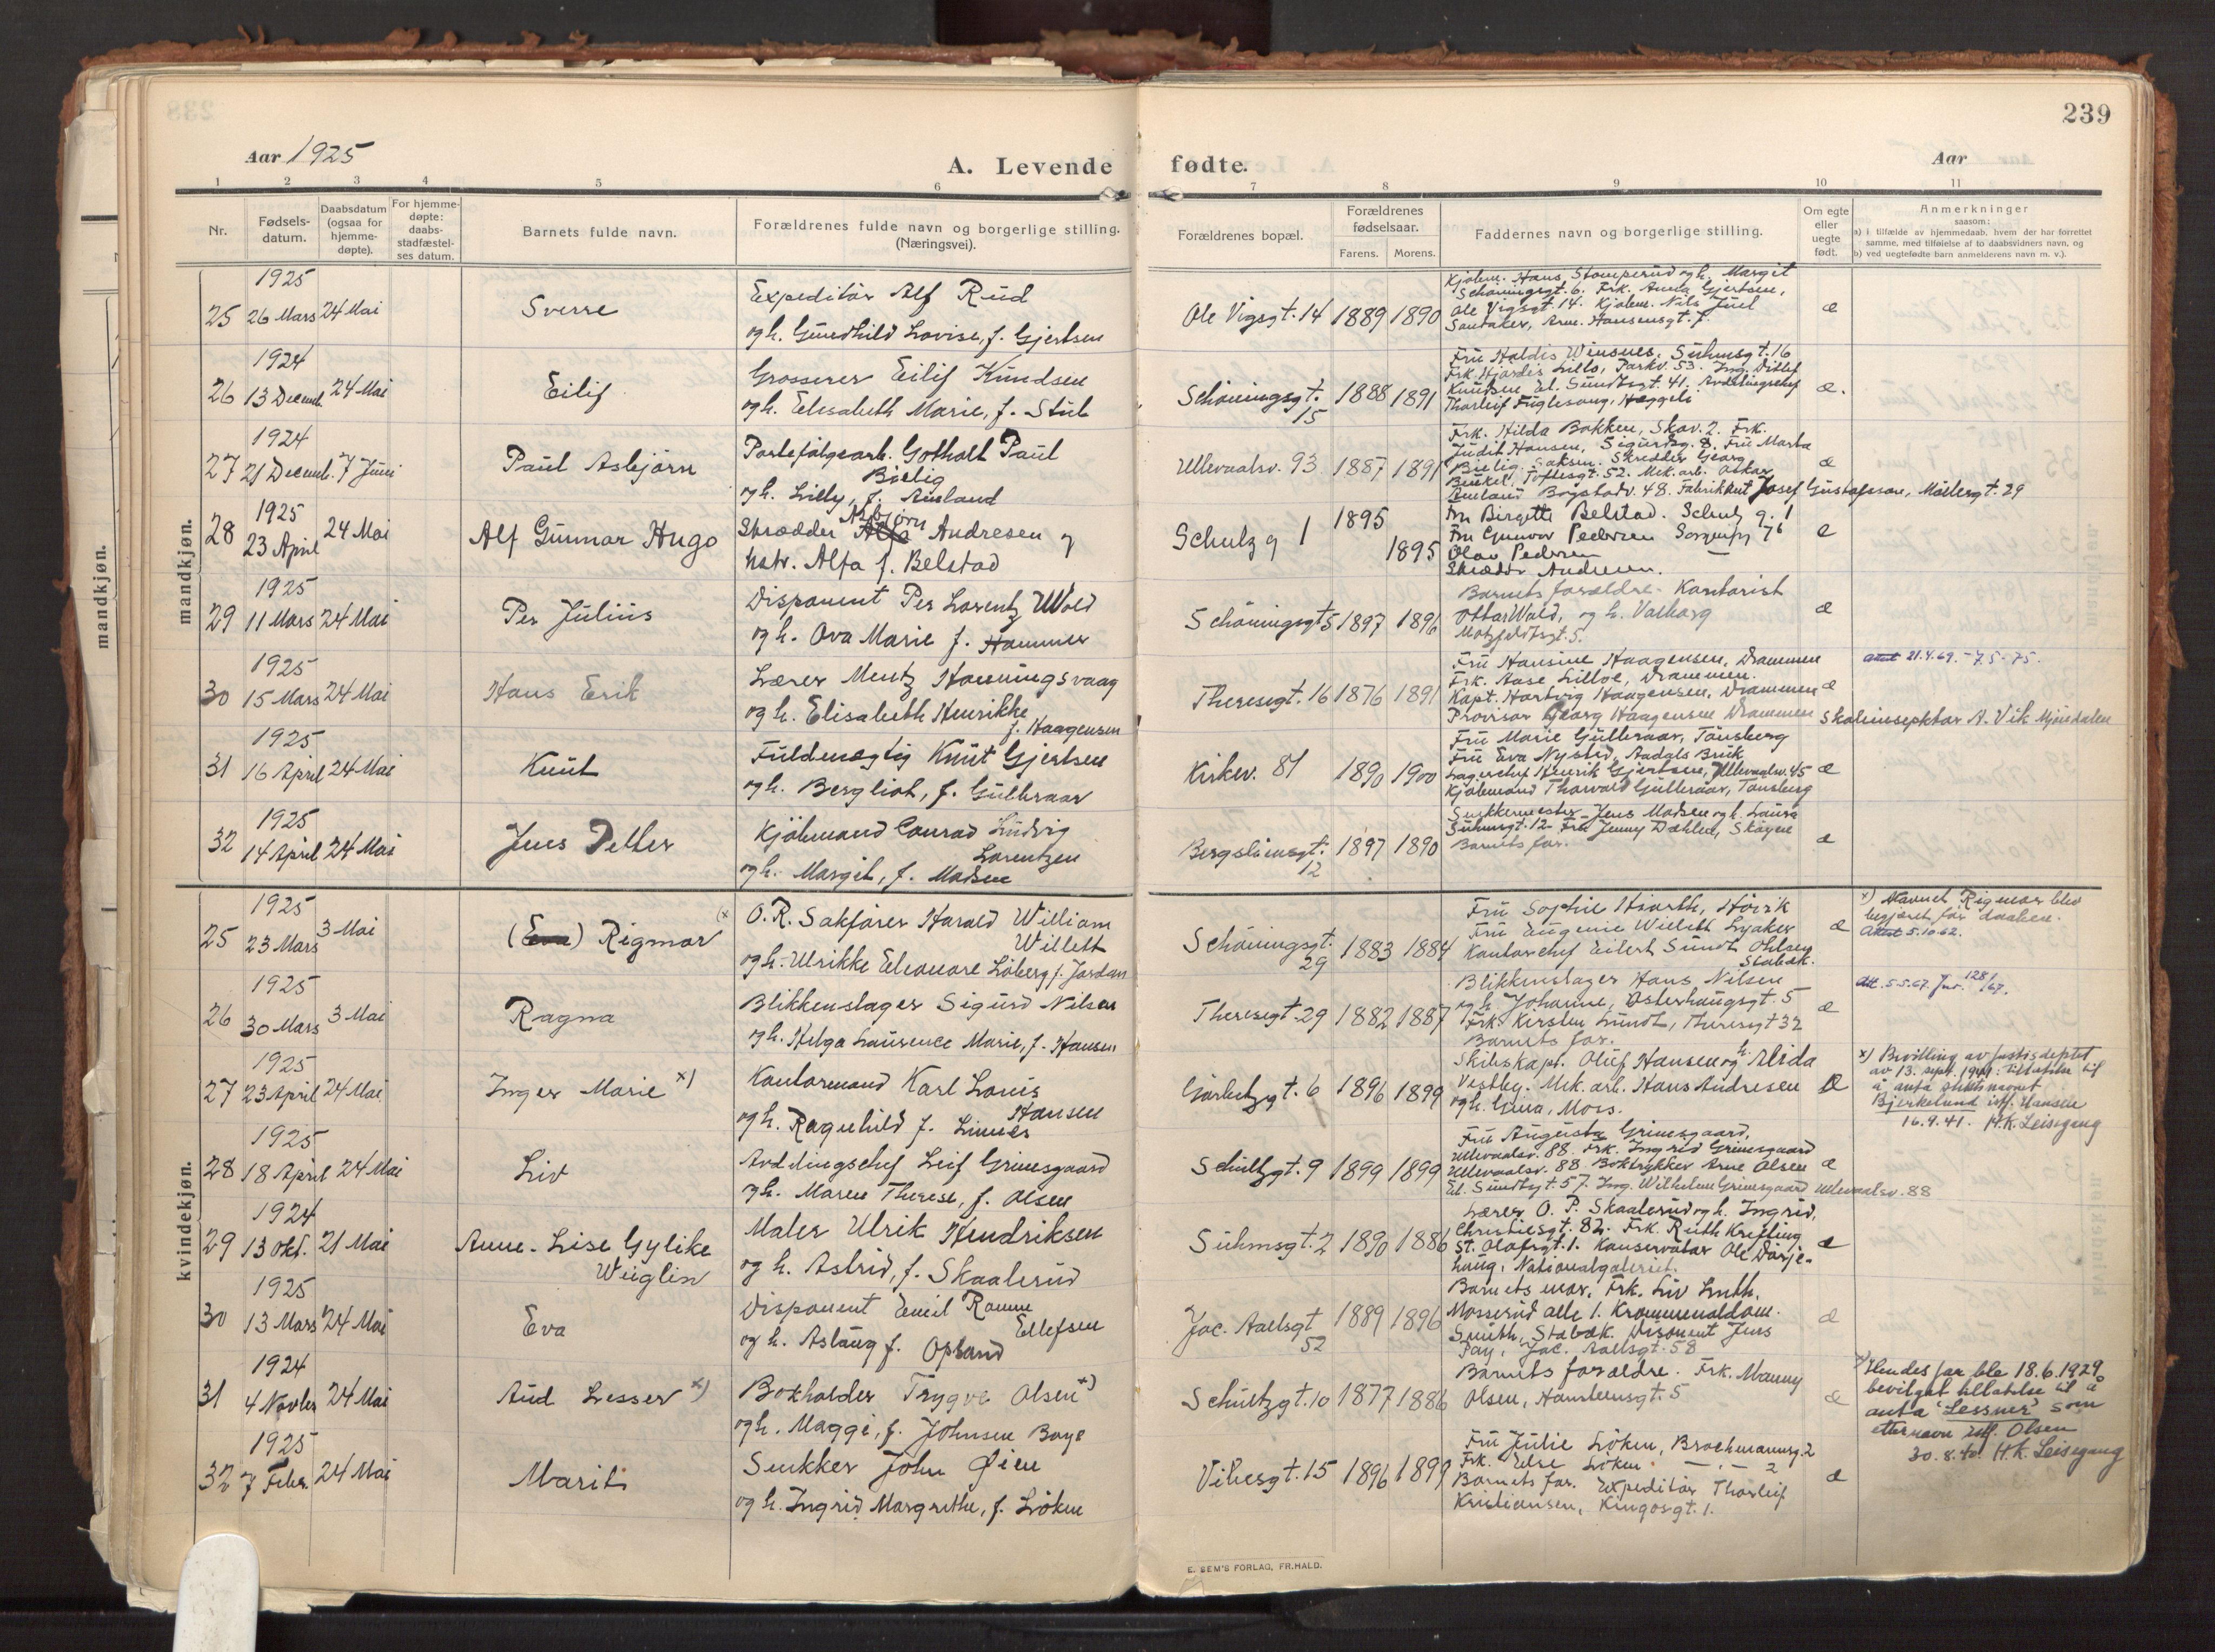 239
Aar 1925
A. Levende fødte.
Aar
1 2 3 4 5 6 7 8 9 10 11
Nr.
Fødsels-
datum.
Daabsdatum
(ogsaa for
hjemme-
døpte).
For hjemme-
døpte:
daabs-
stadfæstel-
ses datum.
Barnets fulde navn.
Forældrenes fulde navn og borgerlige stilling.
(Næringsvei).
Forældrenes bopæl.
Forældrenes
fødselsaar.
Farens. Morens.
Faddernes navn og borgerlige stilling.
Om egte
eller
uegte
født.
Anmerkninger
saasom:
a) i tilfælde av hjemmedaab, hvem der har forrettet
samme, med tilføielse af to daabsvidners navn, og
b) ved uegtefødte barn anmelderens navn m. v.).
mandkjøn.
mandkjøn.
1925
25 26 Mars 24 Mai Sverre
Expeditør Alf Rud
og h. Gundhild Lovise, f. Gjertsen
Ole Vigsgt. 14 1889 1890
Kjøbm. Hans Stomperud og h. Margit
Schøningsgt. 6. Frk. Anna Gjertsen,
Ole Vigsgt. 14. Kjøbm. Nils Juel
Sandaker, Arne Hansensgt. 7.
æ
1924
26 13 Decemb. 24 Mai Eilif
Grosserer Eilif Knudsen
og h. Elisabeth Marie, f. Stub
Schøningsgt.
15
1888 1891
Fru Haldis Winsnes, Suhmsgt. 16
Frk. Hjørdis Lillo, Parkv. 53. Ing. Ditlef
Knudsen El. Sundtsgt. 41. Avdelingschef
Thorleif Fuglesang, Heggeli
æ.
1924
27 21 Decemb. 7 Juni Paul Asbjørn
Portefølgearb. Gotholt Paul
Bielig
og h. Lilly, f. Amland
Ullevaalsv. 93 1887 1891
Frk. Hilda Bakken, Skov. 2. Frk.
Judit Hansen, Sigurdsg. 8. Fru Marta
Bielig. Saksen. Skredder Georg
Toftesgt. 52. Mek. arb. Oskar
Amland Bogstadv. 48. Fabrikkeut Josef Gustafsson, Møllergt. 29
æ
1925
28 23 April 24 Mai Alf Gunnar Hugo
Skrædder Asbjørn Andresen og
hstr. Alfa f. Belstad
Schulz g 1 1895 1895
Fru Birgitte Belstad. Schulz g. 1
Fru Gunvor Pedersen Sorgenfrig 7 b
Olav Pedersen —
Skrædder Andresen.
e
1925
29 11 Mars 24 Mai Per Julius
Disponent Per Lorentz Wold
og h. Ova Marie f. Hammer
Schøningsgt 5 1897 1896
Barnets forældre. Kontorist
Ottar Wold, og h. Valborg
Motzfeldtsgt. 5.
æ
1925
30 15 Mars 24 Mai Hans Erik
Lærer Mentz Honningsvaag
og h. Elisabeth Henrikke
f. Haagensen
Theresegt. 16 1876 1891
Fru Hansine Haagensen, Drammen
Frk. Aase Lilloe, Drammen.
Kapt. Hartvig Haagensen, Drammen
Provisor Georg Haagensen Drammen Skoleinspektør A. Vik Mjøndalen
æ
Attest 21.4.69. - 7.5.-75.
1925
31 16 April 24 Mai Knut
Fuldmægtig Knut Gjertsen
og h. Bergliot, f. Gulbraar
Kirkev. 81 1890 1900
Fru Marie Gulbraar, Tønsberg
Fru Eva Nysted, Aadals Bruk
Lagerchef Henrik Gjertsen, Ullevaalsv. 45
Kjøbmand Thorvald Gulbraar, Tønsberg
æ
1925
32 14 April 24 Mai Jens Petter
Kjøbmand Conrad Ludvig
Lorentzen
og h. Margit, f. Madsen
Bergsliensgt.
12
1897 1890
Snekkermester Jens Madsen og h. Laura
Suhmsgt. 12 Fru Jenny Dæhlen, Skøyen
Barnets far.
æ
kvindekjøn.
1925
25 23 Mars 3 Mai (Eva) Rigmor (x
O.R. Sakfører Harald William
Willett
og h. Ulrikke Eleonore Løberg f. Jordan
Schøningsgt.
29
1883 1884
Fru Sophie Hiorth, Høvik
Fru Eugenie Willett Lysaker
Kontorchef Eilert Sundt Ohlsen
Stabæk.
æ
x) Navnet Rigmor blev
begjæret før daaben.
Attest 5.10.62.
1925
26 30 Mars 3 Mai Ragna
Blikkenslager Sigurd Nilsen
og h. Helga Laurence Marie, f. Hansen
Theresegt. 29 1882 1887
Blikkenslager Hans Nilsen
og h. Johanne, Østerhaugsgt. 5
Frk. Kirsten Lundt, Theresegt 32
Barnets far.
æ
Att. 5.5.67. Jnr. 128/67.
1925
27 23 April 24 Mai Inger Marie x)
Kontormand Karl Louis
Hansen
og h. Ragnhild f. Linnes
Gørbitzgt. 6 1896 1899
Skibskapt. Oluf Hansen og h. Alida
Vestby. Mek. arb. Hans Andresen
og h. Gina, Moss.
Æ
x) Bevilling av Justisdeptet
av 13. sept. 1941: tillatelse til
å anta slektsnavnet
Bjerkelund istf. Hansen
16.9.41. H.K. Leisegang
1925
28 18 April 24 Mai Liv
Avdelingschef Leif Grimsgaard
og h. Maren Therese, f. Olsen
Schultzgt. 9 1899 1899
Fru Augusta Grimsgaard,
Ullevaalsv. 88. Frk. Ingrid Grimsgaard
Ullevaalsv. 88 Boktrykker Arne Olsen
El. Sundtsgt. 57. Ing. Wilhelm Grimsgaard Ullevaalsv. 88
æ
1924
29 13 Okt. 21 Mai Anne-Lise Gylike
Wüglin
Maler Ulrik Hendriksen
og h. Astrid, f. Skaalerud
Suhmsgt. 2 1890 1886
Lærer O. P. Skaalerud og h. Ingrid,
Christiesgt. 82. Frk. Ruth Krefting
St. Olafsgt. 1. Konservator Ole Dørje-
haug, Nationalgaleriet.
æ
1925
30 13 Mars 24 Mai Eva
Disponent Emil Ramm
Ellefsen
og h. Aslaug f. Opsand
Jac. Aallsgt
52
1889 1896
Barnets mor. Frk. Liv Smith,
Mosserud alle 1. Krommenoldom.
Smith, Stabæk. Disponent Jens
Pay, Jac. Aallsgt. 58
æ
1924
31 4 Novbr 24 Mai Aud Lesser x)
Bokholder Trygve Olsen x)
og h. Maggi, f. Johnsen Boye
Schultzgt. 10 1877 1886
Barnets forældre. Frk. Manny
Olsen, Hansteensgt. 5
æ
x) Hendes far ble 18.6.1929
bevilget tillatelse til å
anta "Lessner" som
etternavn istf. Olsen
30.8.40. H.K. Leisegang
1925
32 7 Febr. 24 Mai Marit
Snekker John Øien
og h. Ingrid Margrethe, f. Løken
Vibesgt. 15 1896 1899
Fru Julie Løken, Brochmannsg. 2
Frk. Else Løken — " — 2
Barnets far. Expeditør Thorleif
Kristiansen, Kingosgt. 1.
æ
E. SEM'S FORLAG, FR.HALD.